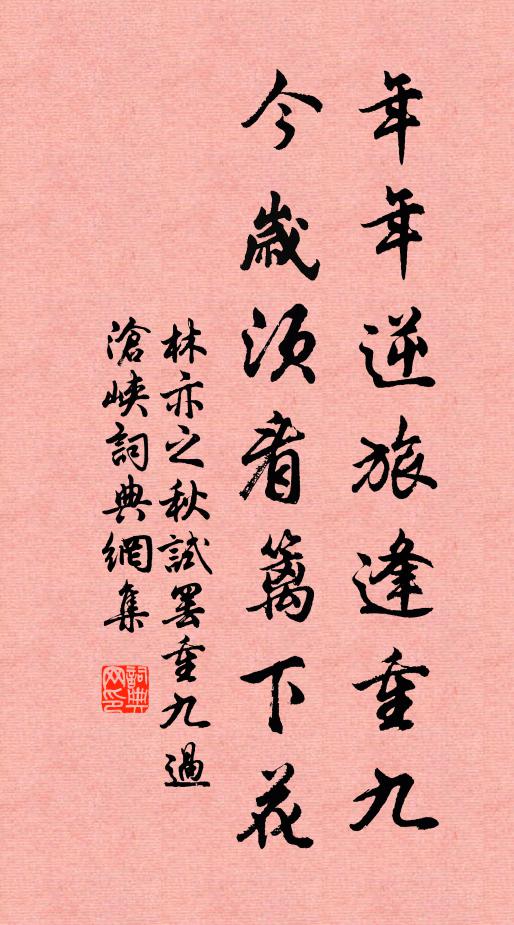 年年逆旅逢重九
今歲須看籬下花
林亦之秋試罷重九過
滄峽詞典網集
詞典網印